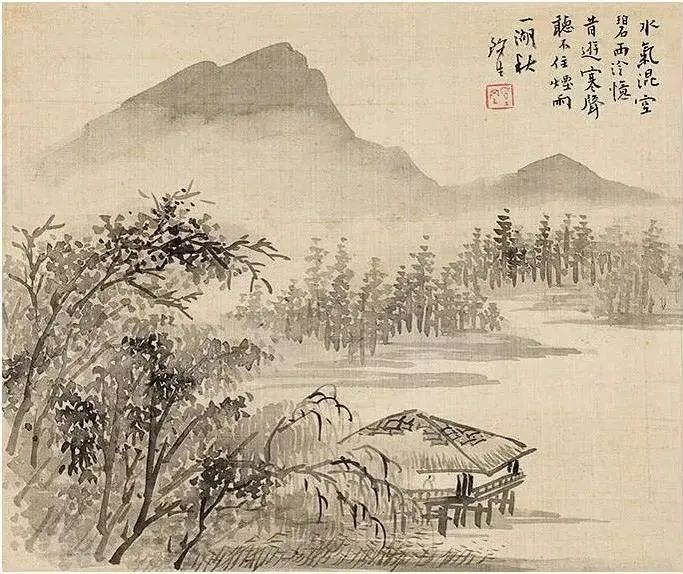 水氣混空
碧西泠憶
昔遊寒聲
聽不住煙雨
一湖秋